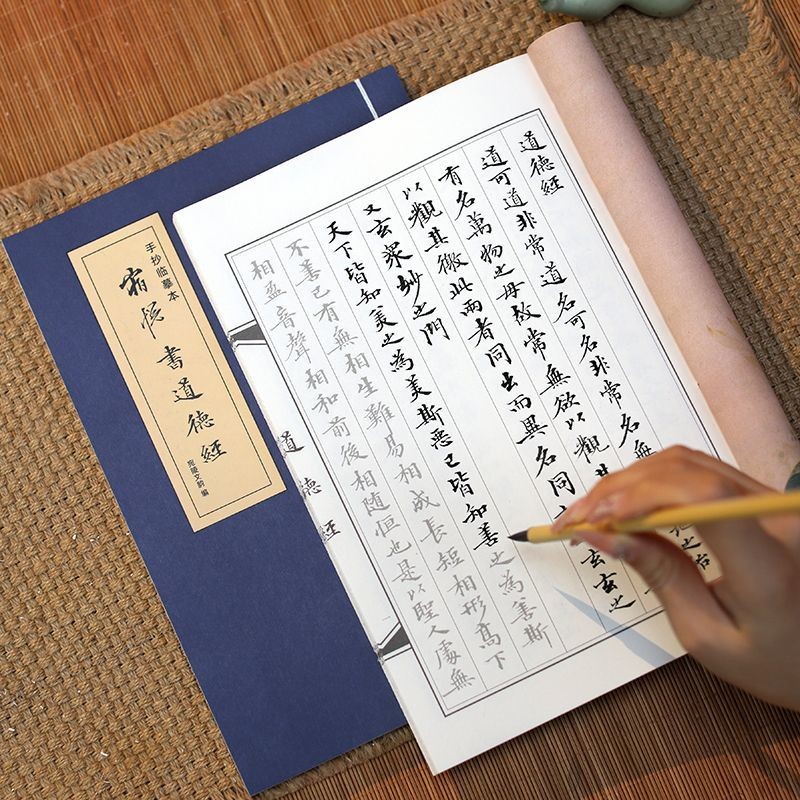 道德經
道可道非常道名可名非常名無
地之始
有名萬物之母故常無欲以觀其
以觀其徼此兩者同出而異名同
玄玄之
又玄眾妙之門
天下皆知美之為美斯惡已皆知善之為善斯
不善已有無相生難易相成長短相形高下
相盈音聲相和前後相隨恒也是以聖人處無
道德經
手抄临摹本
書道德經
编